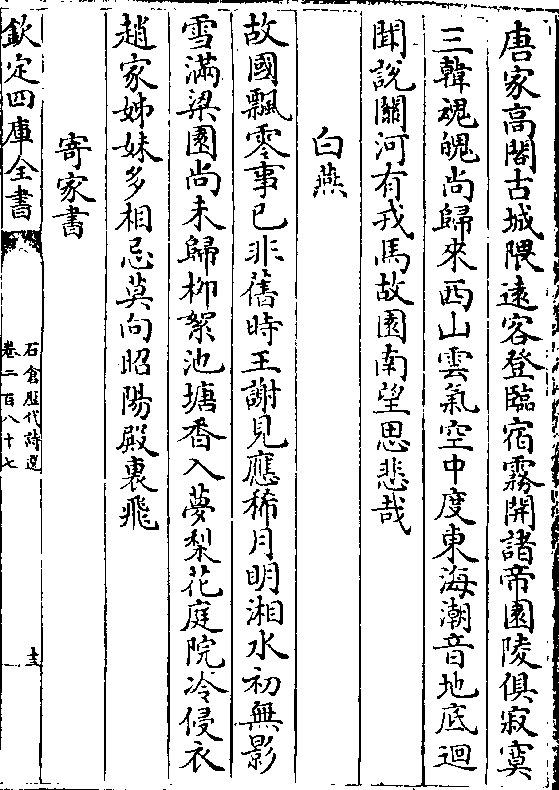 唐家高閣古城隈遠客登臨宿霧開諸帝園陵俱寂寞
三韓魂魄尚歸來西山雲氣空中度東海潮音地底迴
聞說關河有戎馬故園南望思悲哉
白燕
故國飄零事已非舊時王謝見應稀月明湘水初無影
雪滿梁園尚未歸柳絮池塘香入夢梨花庭院冷侵衣
趙家姊妹多相忌莫向昭陽殿裏飛
寄家書
欽定四庫全書
石倉歷代詩選
卷二百八十七
十三